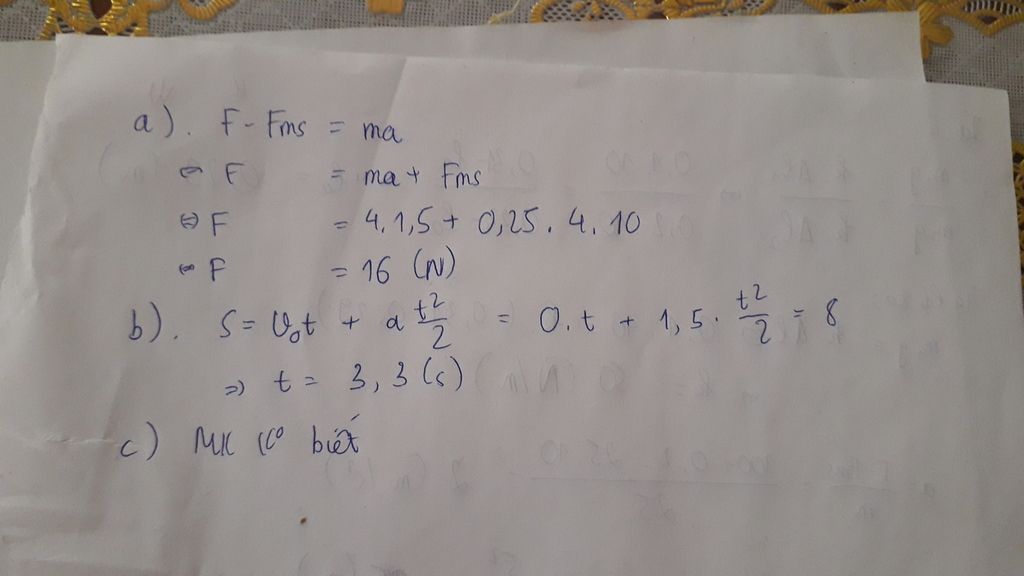 a). F - Fms = ma
⇔ F = ma + Fms
⇔ F = 4.1,5 + 0,25.4.10
⇔ F = 16 (N)
b). S = V₀t + a t²/2 = 0.t + 1,5. t²/2 = 8
=> t = 3,3 (s)
c) MK K⁰ biết